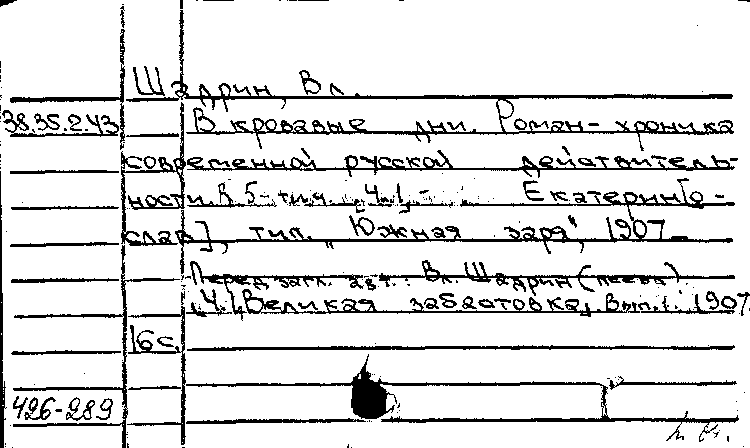 Шадрин, Вл.
38.35.2.43 В кровавые дни. Роман-хроника
современной русской действитель-
ности. В 5-ти ч. [Ч.] - Екатерин[о-
слав], тип. "Южная заря", 1907 -
Перед загл. авт.: Вл. Шадрин (псевд.)
[Ч.] Великая забастовка, Вып. 1. 1907.
16 с.
426-289